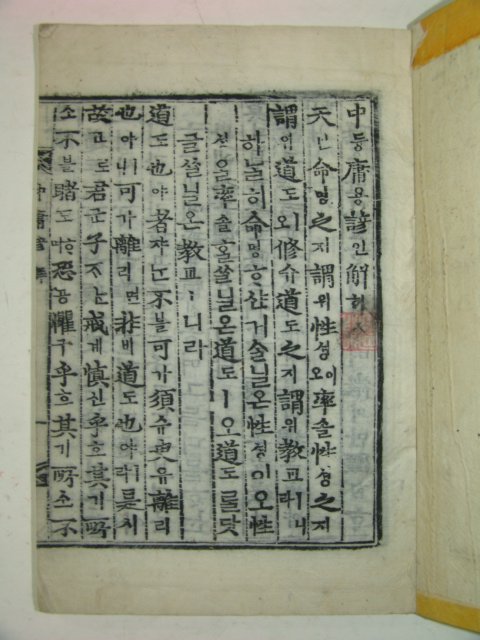 中듕庸용諺언解ᄒᆡ
天텬命명之지謂위性셩이오率솔性셩之지
謂위道도ㅣ오修슈道도之지謂위敎교ㅣ니라
하ᄂᆞᆯ히命명ᄒᆞ샨거슬닐온性셩이오性
셩을率솔ᄒᆞᆯ쏠닐온道도ㅣ오道도ᄅᆞᆯ닷
글쏠닐온敎교ㅣ니라
道도也야者쟈ᄂᆞᆫ不블可가須슈臾유離리
也야ㅣ니可가離리면非비道도也야ㅣ라是시
故고로君군子ᄌᆞᄂᆞᆫ戒계愼신乎호其기所
소不블睹도ᄒᆞ며恐공懼구乎호其기所소不